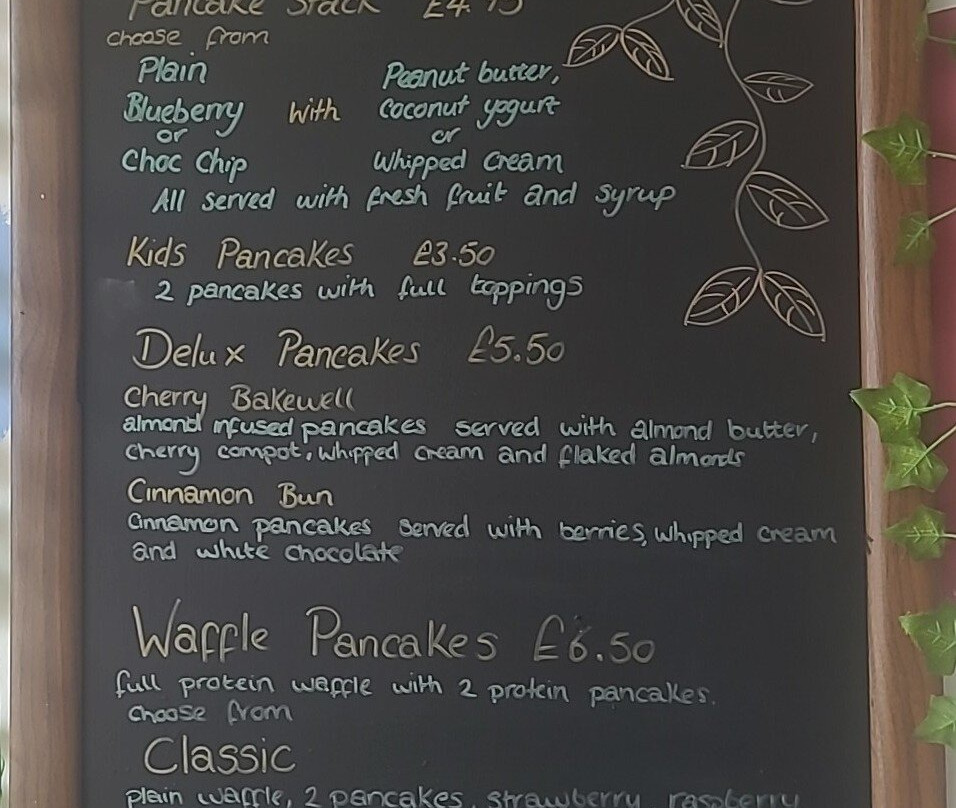 Pancake Stack £4.75
choose from
Plain Peanut butter,
Blueberry with coconut yogurt
or or
Choc Chip Whipped cream
All served with fresh fruit and syrup
Kids Pancakes £3.50
2 pancakes with full toppings
Delux Pancakes £5.50
Cherry Bakewell
almond infused pancakes served with almond butter,
cherry compot, whipped cream and flaked almonds
Cinnamon Bun
Cinnamon pancakes served with berries, whipped cream
and white chocolate
Waffle Pancakes £6.50
full protein waffle with 2 protein pancakes.
choose from
Classic
plain waffle, 2 pancakes, strawberry raspberry